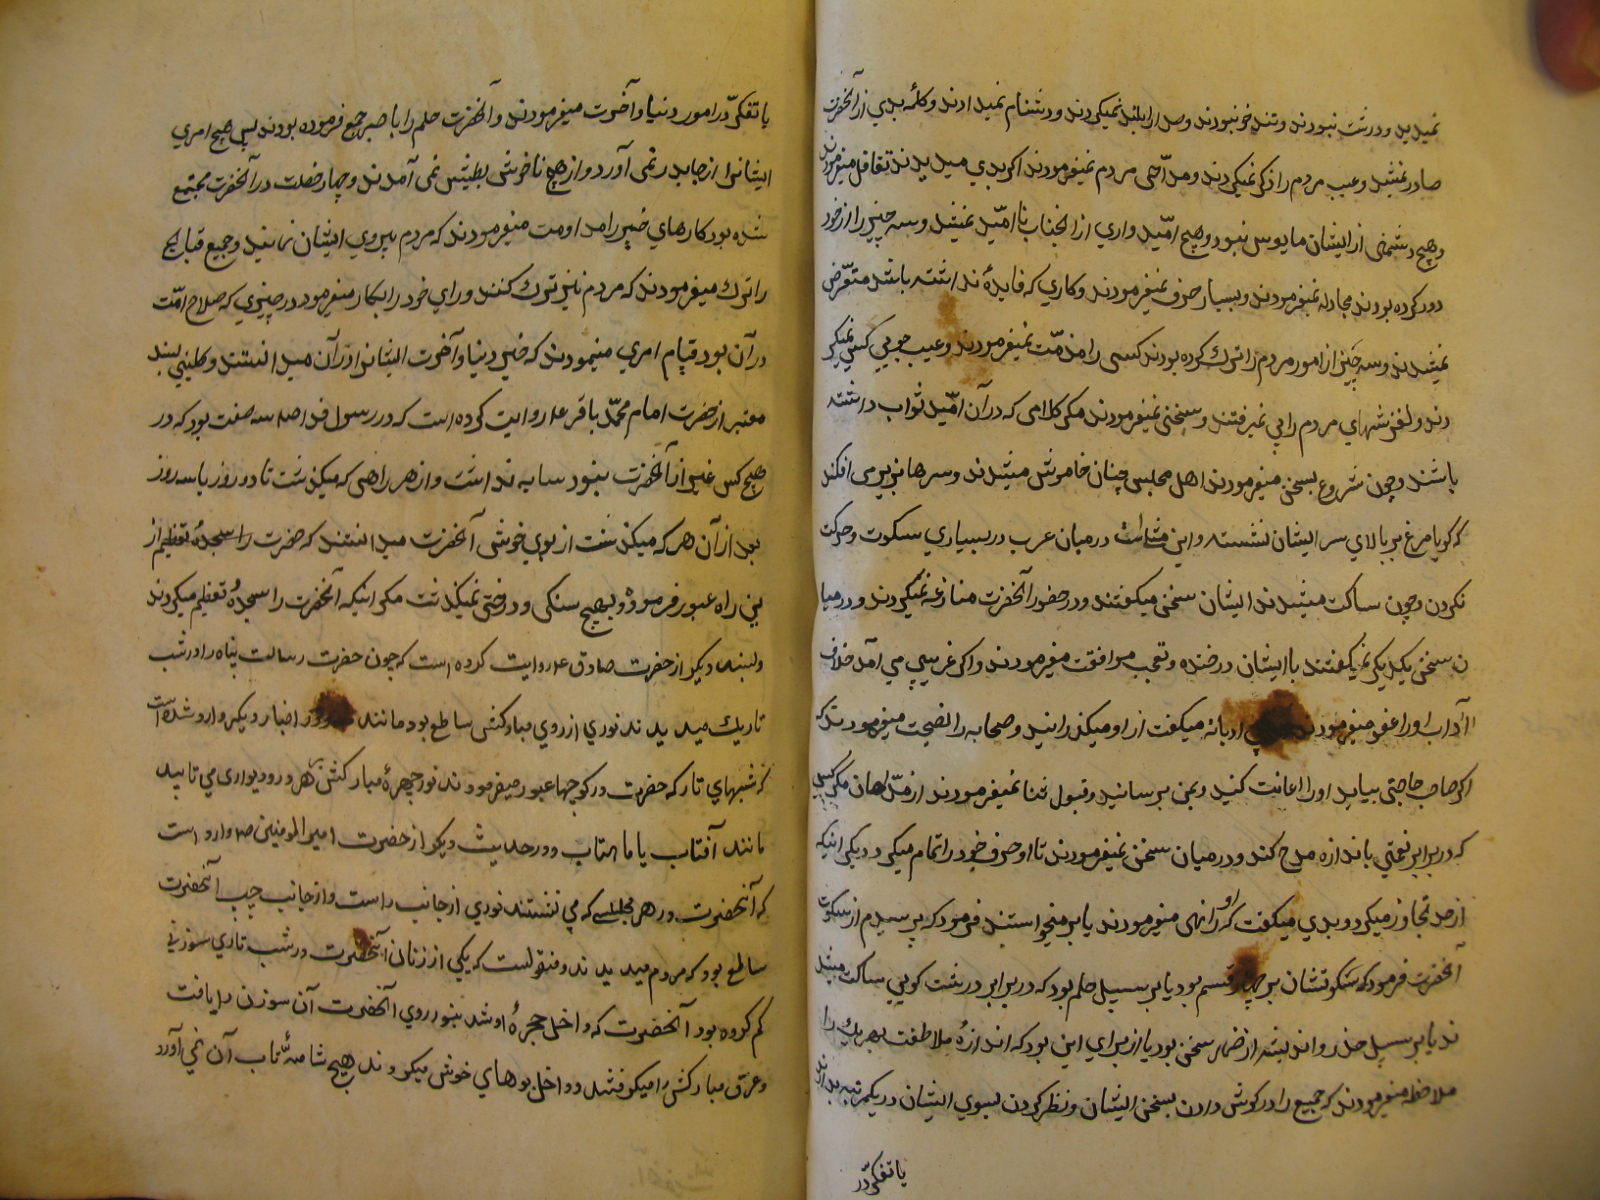 نمیدید و درشت نبودند و تند خو نبودند و صدا را بلند نمیکردند و دشنام نمیدادند و کلمه بدی از آنحضرت
صادر نمیشد و عیب مردم را ذکر نمیکردند و مداحی مردم نمیفرمودند اکر بدی میدیدند تغافل میفرمودند
و هیچ دشمنی از ایشان مایوس نبود و هیچ امیدواری از آنجناب نا امید نمیشد و سه چیز را از خود
دور کرده بودند مجادله نمیفرمودند و بسیار حرف نمیفرمودند و کاری که فایدهٔ نداشته باشد متعرض
نمیشدند و سه چیز از امور مردم را ترک کرده بودند کسی را مذمت نمیفرمودند و عیب جویی کسی نمیکر
دند و لغزشهای مردم را پی نمیرفتند و سخنی نمیفرمودند مکر کلامی که در آن امید ثواب داشته
باشند و چون شروع بسخن میفرمودند اهل مجلس چنان خاموش میشدند و سرها بزیر می افکند
که کویا مرغ بر بالای سر ایشان نشسته و این مثل است در میان عرب در بسیاری سکوت و حرکت
نکردن و چون ساکت میشدند ایشان سخن میکفتند و در حضور آنحضرت منازعه نمیکردند و در میا
ن سخن یکدیکر نمیکفتند با ایشان در خنده و تعجب موافقت میفرمودند و اکر غریبی می آمد خلاف
آداب او را عفو میفرمودند ادبانه میکفت از او میکذرانید و صحابه را نصیحت میفرمودند که
اکر صاحب حاجتی بیاید او را اعانت کنید و بمن برسانید و قبول ثنا نمیفرمودند از مداحان مکر کسی
که در برابر نعمتی باندازه مدح کند و در میان سخن نمیفرمودند تا او حرف خود را تمام میکرد و دیکر اینکه
از حد تجاوز میکرد و بدی میکفت که او را نهی میفرمودند یا بر میخواستند فرمود که پرسیدم از سکوت
آنحضرت فرمود که سکوتشان بر چهار قسم بود یا بر سبیل حلم بود که در برابر درشت کویی ساکت میشد
ند یا بر سبیل حذر و اندیشه از ضرر سخن بود یا از برای این بود که اندازهٔ ملاطفت بهر یک را
ملاحظه میفرمودند که جمیع را در کوش دادن بسخن ایشان و نظر کردن بسوی ایشان در یکمرتبه بدارند
یا تفکر در
یا تفکر در امور دنیا و آخرت میفرمودند و آنحضرت حلم را با صبر جمع فرموده بودند پس هیچ امری
ایشانرا از جا بدر نمی آورد و از هیچ ناخوشی بطیش نمی آمدند و چهار خصلت در آنحضرت مجتمع
شده بود کارهای خیر را مداومت میفرمودند که مردم پیروی ایشان نمایند و جمیع قبایح
را ترک میفرمودند که مردم نیز ترک کنند و رای خود را بکار میفرمود در چیزی که صلاح امت
در آن بود قیام امری مینمودند که خیر دنیا و آخرت ایشانرا در آن میدانستند و کلینی بسند
معتبر از حضرت امام محمد باقر ع روایت کرده است که در رسول خدا ص سه صفت بود که در
هیچ کس غیر از آنحضرت نبود سایه نداشت و از هر راهی که میکذشت تا دو روز یا سه روز
بعد از آن هر که میکذشت از بوی خوش آنحضرت میدانستند که حضرت را سجدهٔ تعظیم از
ین راه عبور فرموده و بهیچ سنکی و درختی نمیکذشت مکر اینکه آنحضرت را سجدهٔ تعظیم میکردند
و بسند دیکر از حضرت صادق ع روایت کرده است که چون حضرت رسالت پناه را در شب
تاریک میدیدند نوری از روی مبارکش ساطع بود مانند و در اخبار دیکر وارد شده است
که شبهای تار که حضرت در کوچها عبور میفرمودند نور چهرهٔ مبارکش بر هر در و دیواری می تابید
مانند آفتاب یا ماهتاب و در حدیث دیکر از حضرت امیر المومنین ص وارد است
که آنحضرت در هر مجلسی که می نشستند نوری از جانب راست و از جانب چپ آنحضرت
ساطع بود که مردم میدیدند و منقولست که یکی از زنان آنحضرت در شب تاری سوزنی
کم کرده بود آنحضرت که داخل حجرهٔ او شد بنور روی آنحضرت آن سوزن را یافت
و عرق مبارکش را میکرفتند و داخل بوهای خوش میکردند هیچ شامهٔ تاب آن نمی آورد